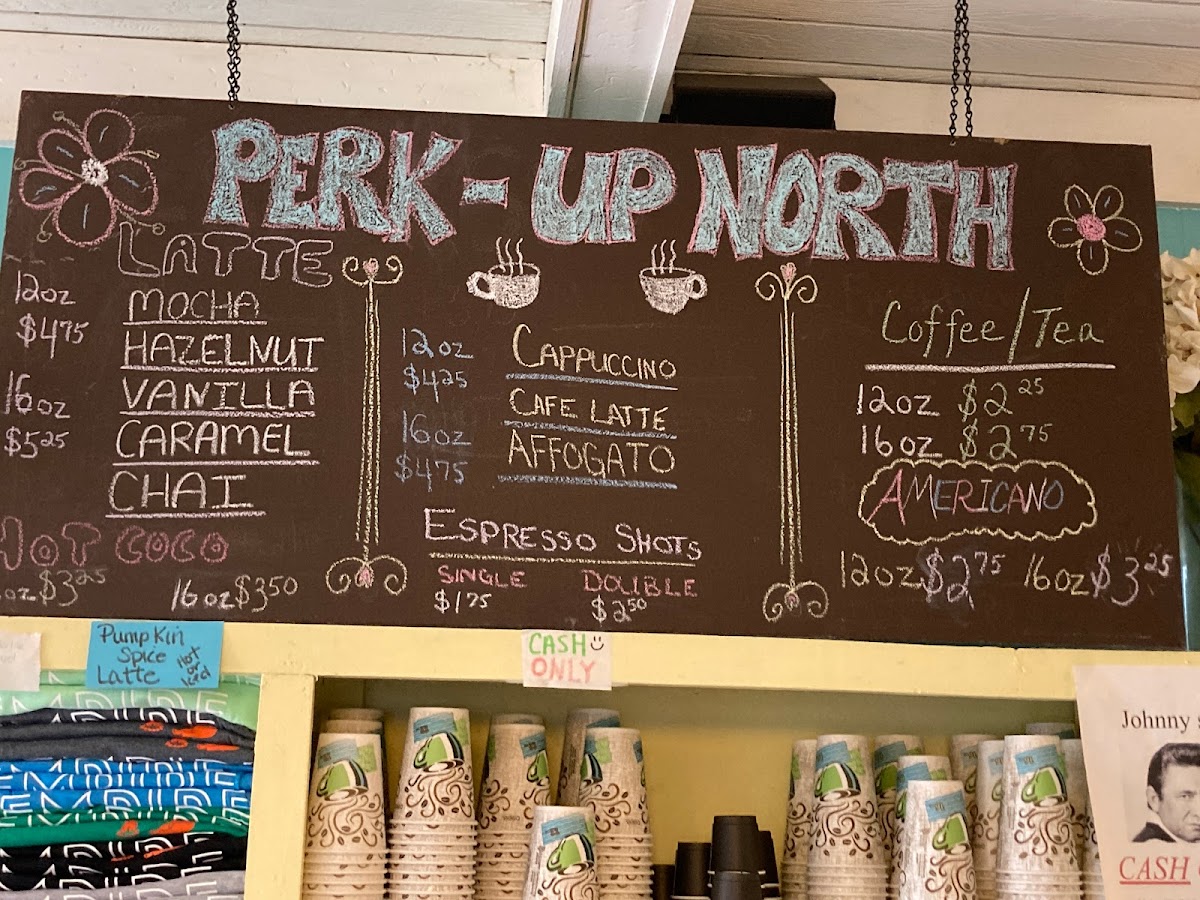 PERK-UP NORTH
LATTE
12oz
$4.75
16oz
$5.25
MOCHA
HAZELNUT
VANILLA
CARAMEL
CHAI
HOT COCO
oz $3.25
16oz $3.50
12oz
$4.25
16oz
$4.75
CAPPUCCINO
CAFE LATTE
AFFOGATO
ESPRESSO SHOTS
SINGLE
$1.75
DOUBLE
$2.50
Coffee/Tea
12oz $2.25
16oz $2.75
AMERICANO
12oz $2.75 16oz $3.25
PumpKin
Spice
Latte
Hot or Iced
CASH
ONLY
Johnny
CASH